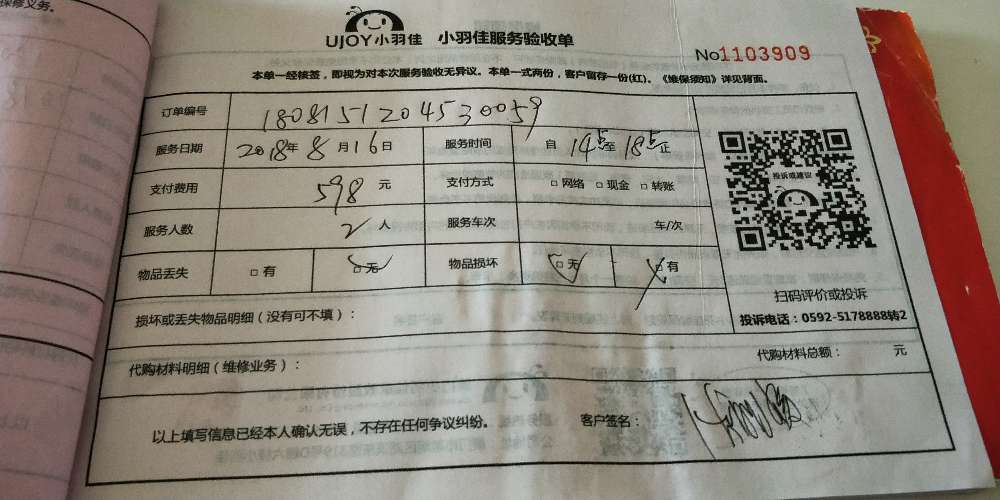 保修义务。
UJOY小羽佳 小羽佳服务验收单
No1103909
本单一经核签，即视为对本次服务验收无异议。本单一式两份，客户留存一份(红)、《维保须知》详见背面。
订单编号 180815120453 0059
服务日期 2018年8月16日 服务时间 自14点至18点正
支付费用 598元 支付方式 □网络 □现金 □转账
服务人数 2人 服务车次 车/次
物品丢失 □有 □无 物品损坏 □无 □有
投诉或建议
扫码评价或投诉
投诉电话：0592-5178888转2
损坏或丢失物品明细（没有可不填）：
代购材料明细（维修业务）： 代购材料总额： 元
以上填写信息已经本人确认无误，不存在任何争议纠纷。 客户签名：